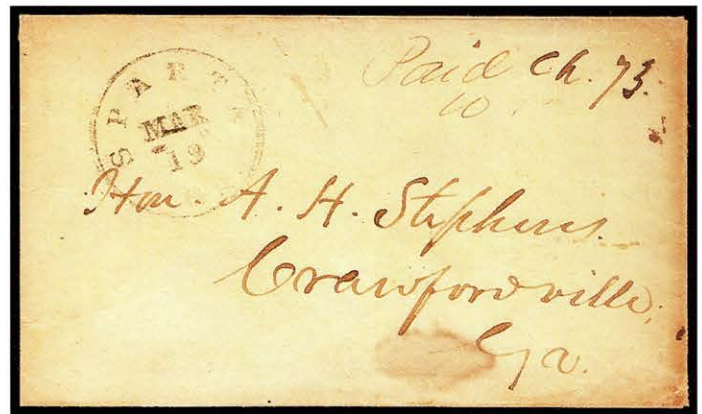 SPARTA
MAR
19
Paid Ch. 73.
10
Hon. A. H. Stephens
Crawfordville,
Ga.